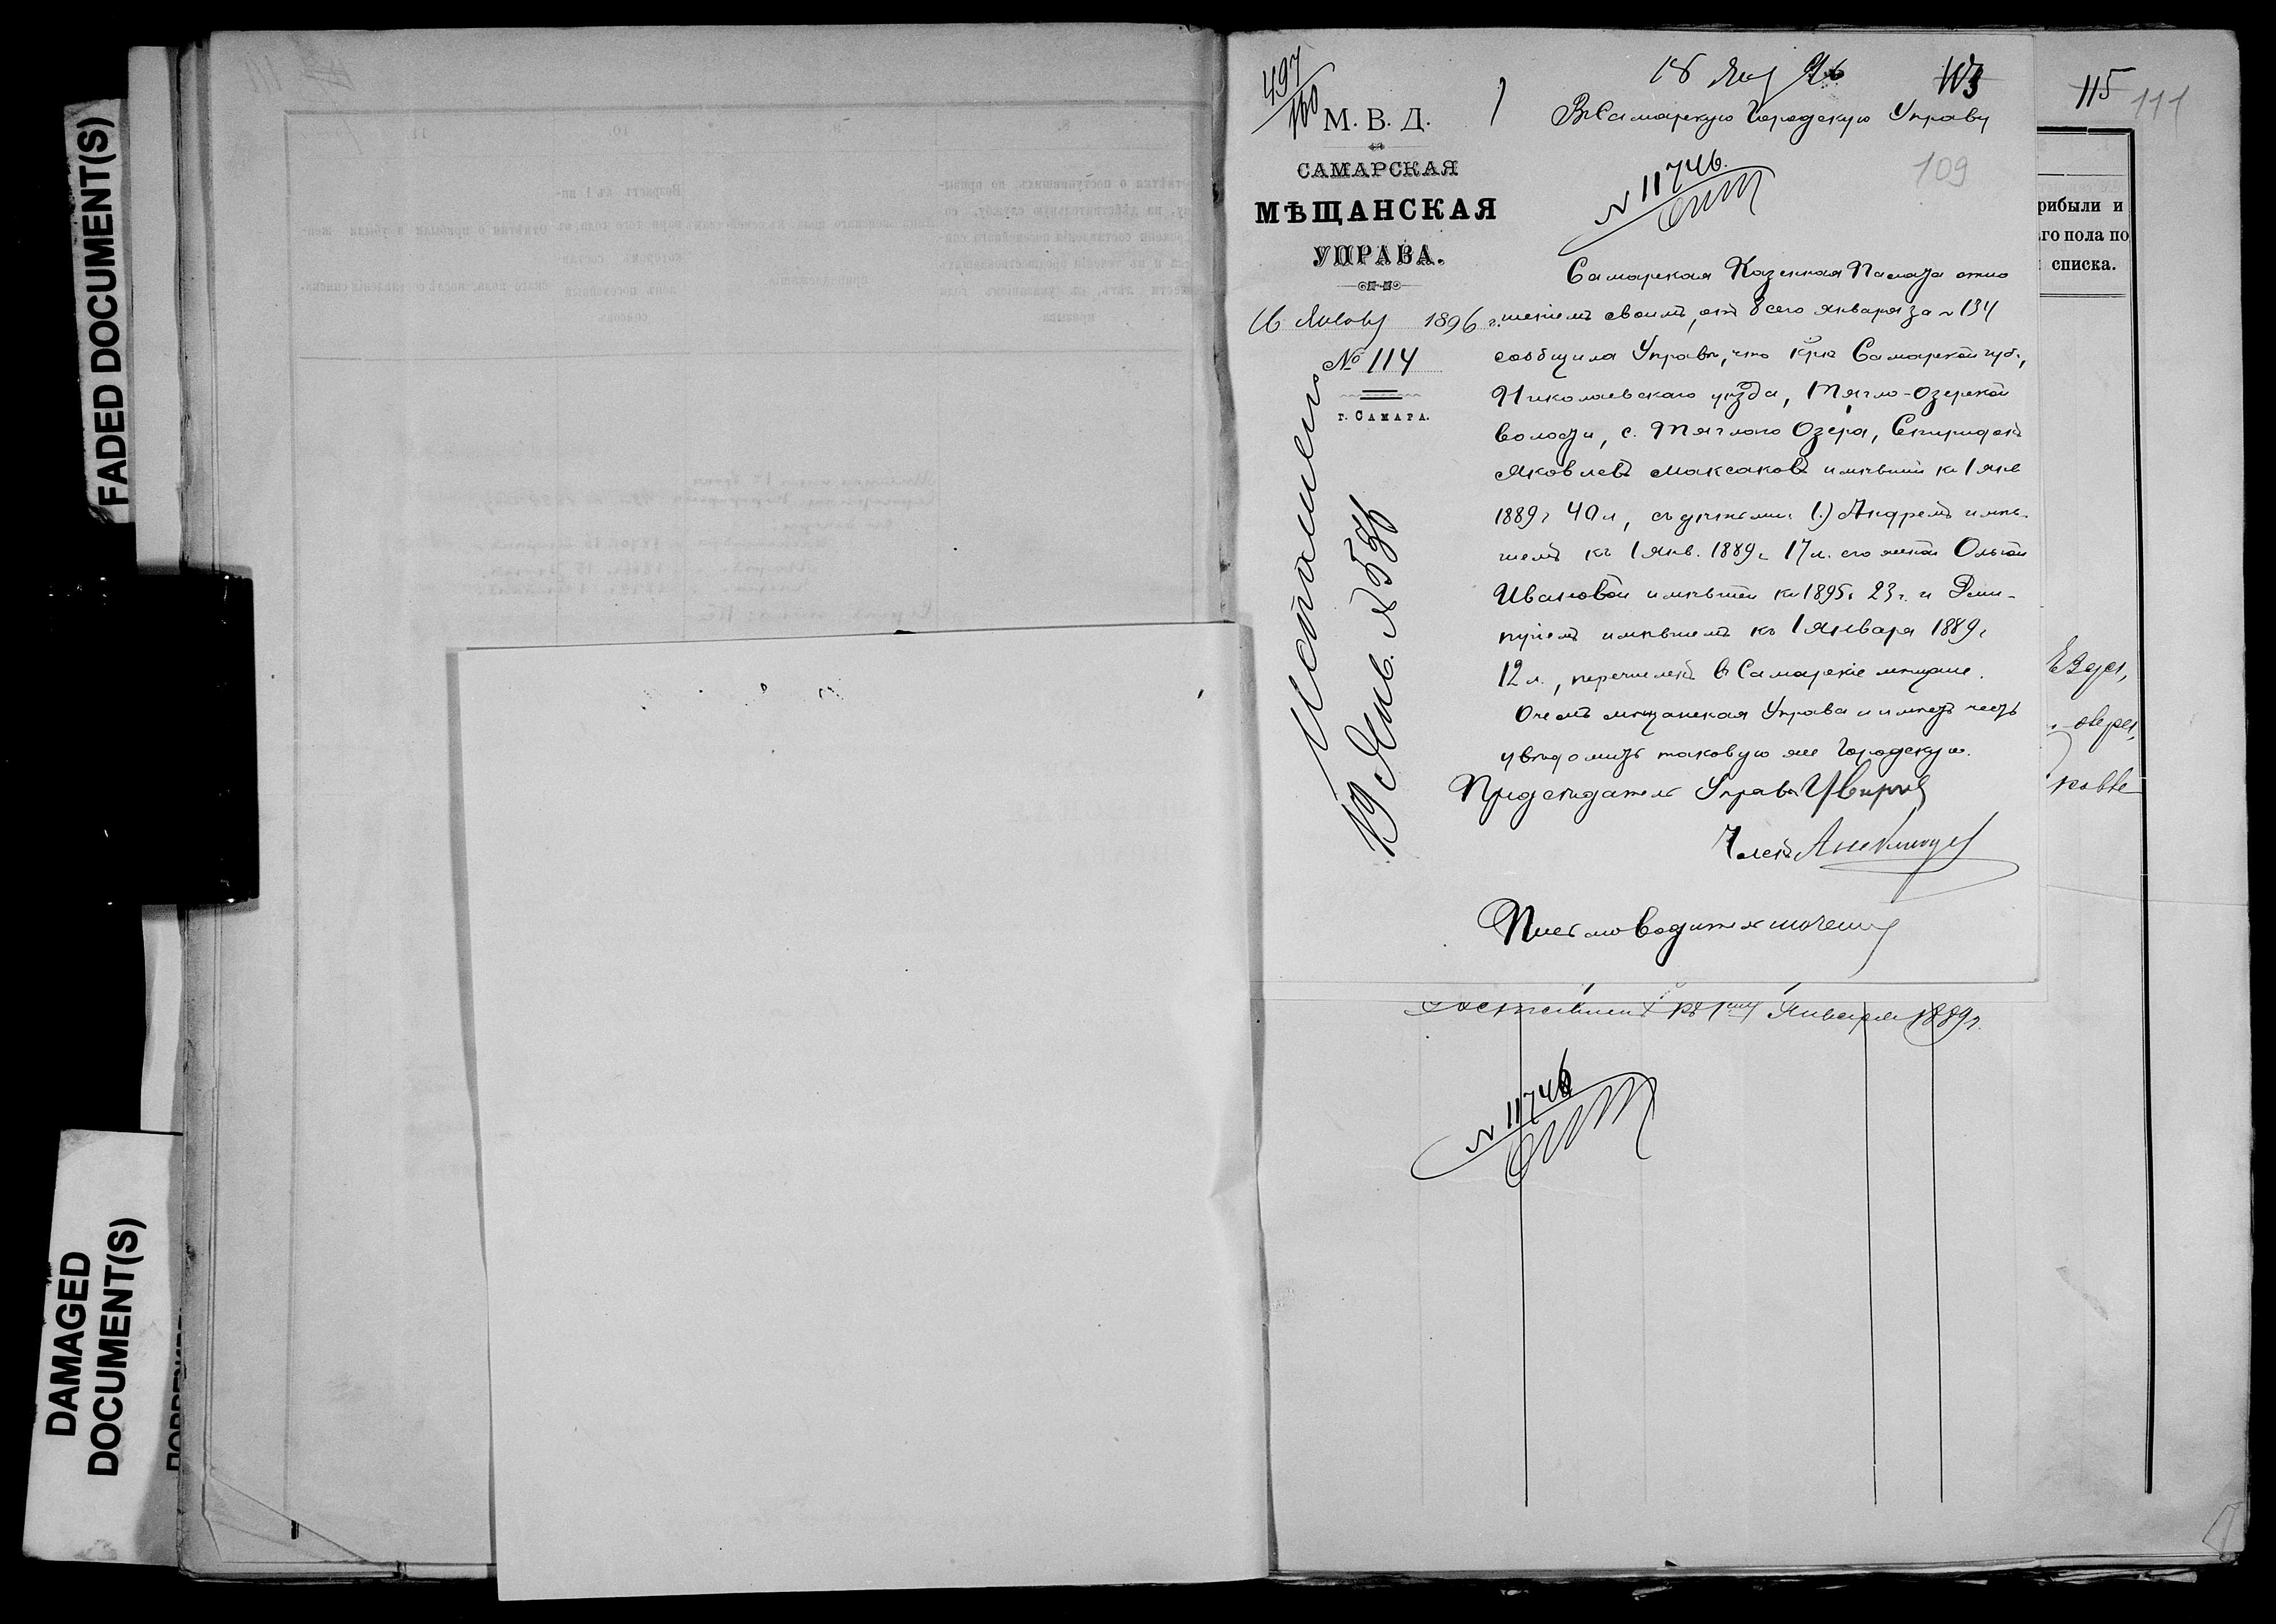 FADED DOCUMENT(S)
DAMAGED
DOCUMENT(S)
497
100
М. В. Д.
САМАРСКАЯ
МѢЩАНСКАЯ
УПРАВА.
16 Января 1896 г.
№ 114
г. САМАРА.
19 Янв. № 556
18 Янв 96
113
115
111
109
Въ Самарскую Городскую Управу
№ 11746.
Самарская Казенная Палата отно
шеніемъ своимъ, отъ 8 сего января за № 134
сообщила Управѣ, что кр-нъ Самарской губ.,
Николаевскаго уѣзда, Тягло-Озерской
волости, с. Тяглаго Озера, Спиридонъ
Яковлевъ Максаковъ имѣвшій къ 1 янв
1889 г 40 л, съ дѣтьми 1.) Андреемъ имѣв-
шемъ къ 1 Янв. 1889 г 17 л. его женой Ольгой
Ивановой имѣвшей къ 1895 г 23 г. и Дми-
тріемъ имѣвшемъ къ 1 Января 1889 г
12 л., перечисленъ въ Самарскіе мѣщане.
О чемъ мѣщанская Управа и имѣетъ честь
увѣдомить таковую же Городскую.
Предсѣдатель Управы
Членъ
Письмоводитель
рибыли и
го пола по
списка.
къ 1му Января 1889 г.
№ 11746